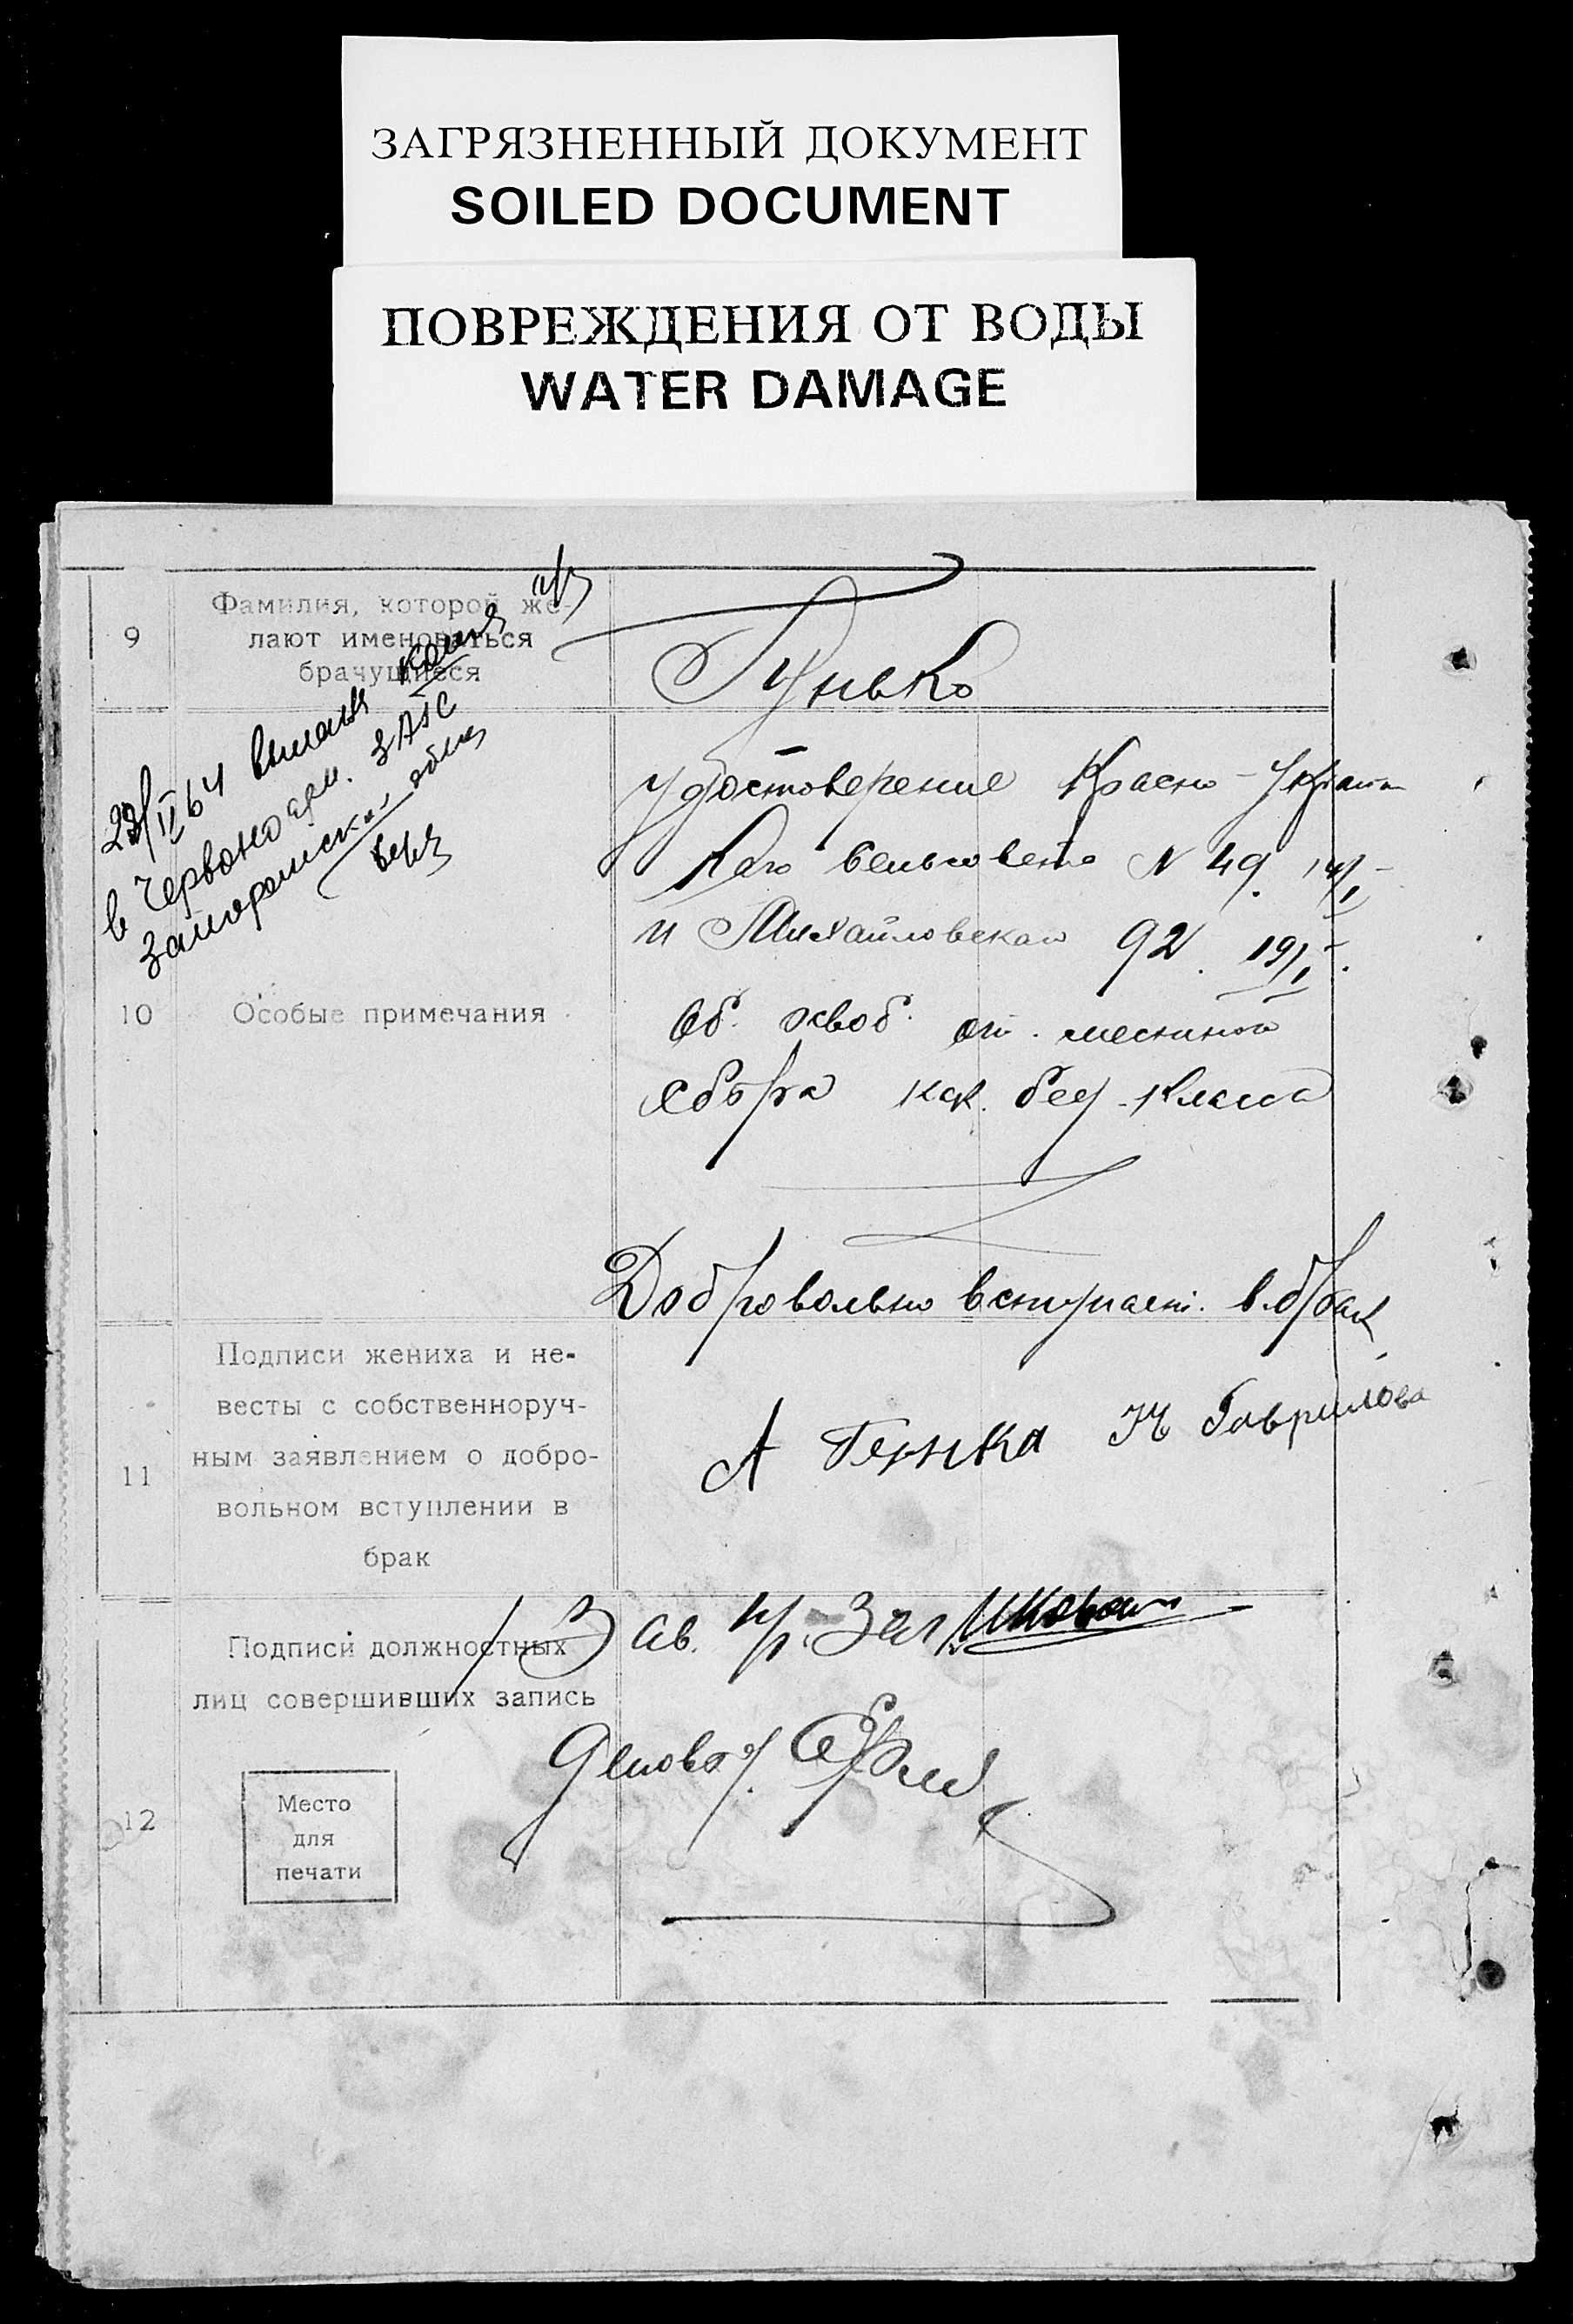 ЗАГРЯЗНЕННЫЙ ДОКУМЕНТ
SOILED DOCUMENT
ПОВРЕЖДЕНИЯ ОТ ВОДЫ
WATER DAMAGE
9
Фамилия, которой же-
лают именоваться
брачущиеся
Гунько
в Червоноарм. ЗАГС
10
Особые примечания
удостоверение Красно-Украин
каго сельсовета N 49. 14/I
и Михайловскаго 92. 19/I.
Об. освоб. от. местного
сбора как. без-класса
Добровольно вступаем. в.брак
11
Подписи жениха и не-
весты с собственноруч-
ным заявлением о добро-
вольном вступлении в
брак
А Гунка Гаврилова
12
Подписи должностных
лиц совершивших запись
Зав.
Деловод.
Место
для
печати